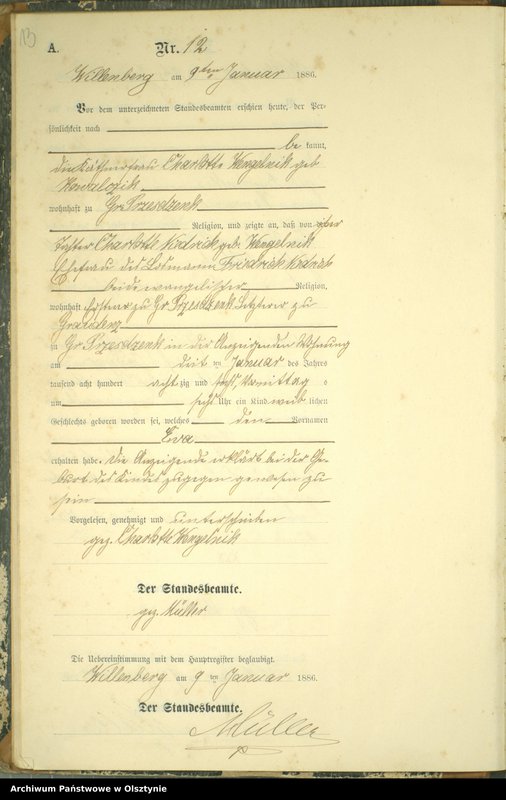 13
A. Nr. 12
Willenberg am 9ten Januar 1886.
Vor dem unterzeichneten Standesbeamten erschien heute, der Per-
sönlichkeit nach
be kannt,
die Käthnerfrau Charlotte Wengelnik geb
wohnhaft zu Gr. Przesdzenk
Religion, und zeigte an, daß von der
Tochter Charlotte Kodrick geb. Wengelnik
Ehefrau des Losmanns Friedrich Kodrick
beide evangelischer Religion,
wohnhaft erstere zu Gr Przesdzenk letzterer zu
Graudenz
zu Gr. Przesdzenk in der Anzeigenden Wohnung
am ten Januar des Jahres
tausend acht hundert acht zig und sechs, Vormittag s
um sechs Uhr ein Kind weib lichen
Geschlechts geboren worden sei, welches den Vornamen
Eva
erhalten habe. Die Anzeigende erklärt bei der Ge-
burt des Kindes zugegen gewesen zu
sein
Vorgelesen, genehmigt und unterschrieben
gez. Charlotte Wengelnik
Der Standesbeamte.
gez. Müller
Die Uebereinstimmung mit dem Hauptregister beglaubigt.
Willenberg am 9 ten Januar 1886.
Der Standesbeamte.
Müller
Archiwum Państwowe w Olsztynie